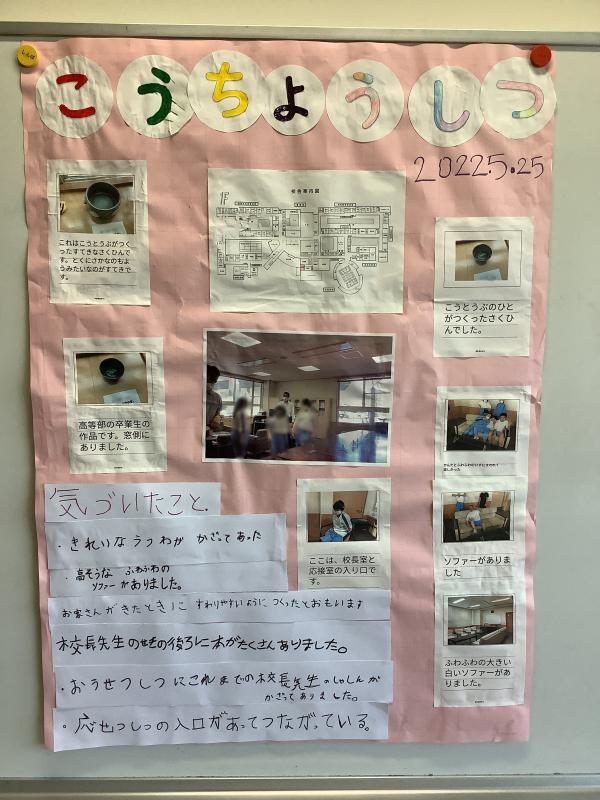 こうちょうしつ
2022.5.25
これはこうとうぶがつく
ったすてきなさくひんで
す。とくにさかなのもよ
うみたいなのがすてきで
す。
校舎案内図
1F
こうとうぶのひと
がつくったさくひ
んでした。
高等部の卒業生の
作品です。窓側に
ありました。
ここは、校長室と
応接室の入り口で
す。
ソファーがありま
した
ふわふわの大きい
白いソファーがあ
りました。
気づいたこと
・きれいなうつわが かざってあった
・高そうな ふわふわの
ソファーがありました。
お客さんがきたときに すわりやすいように つくったとおもいます
校長先生のせきの後ろに本がたくさんありました。
・おうせつしつにこれまでの校長先生のしゃしんが
かざってありました。
・応せつしつの入口があってつながっている。